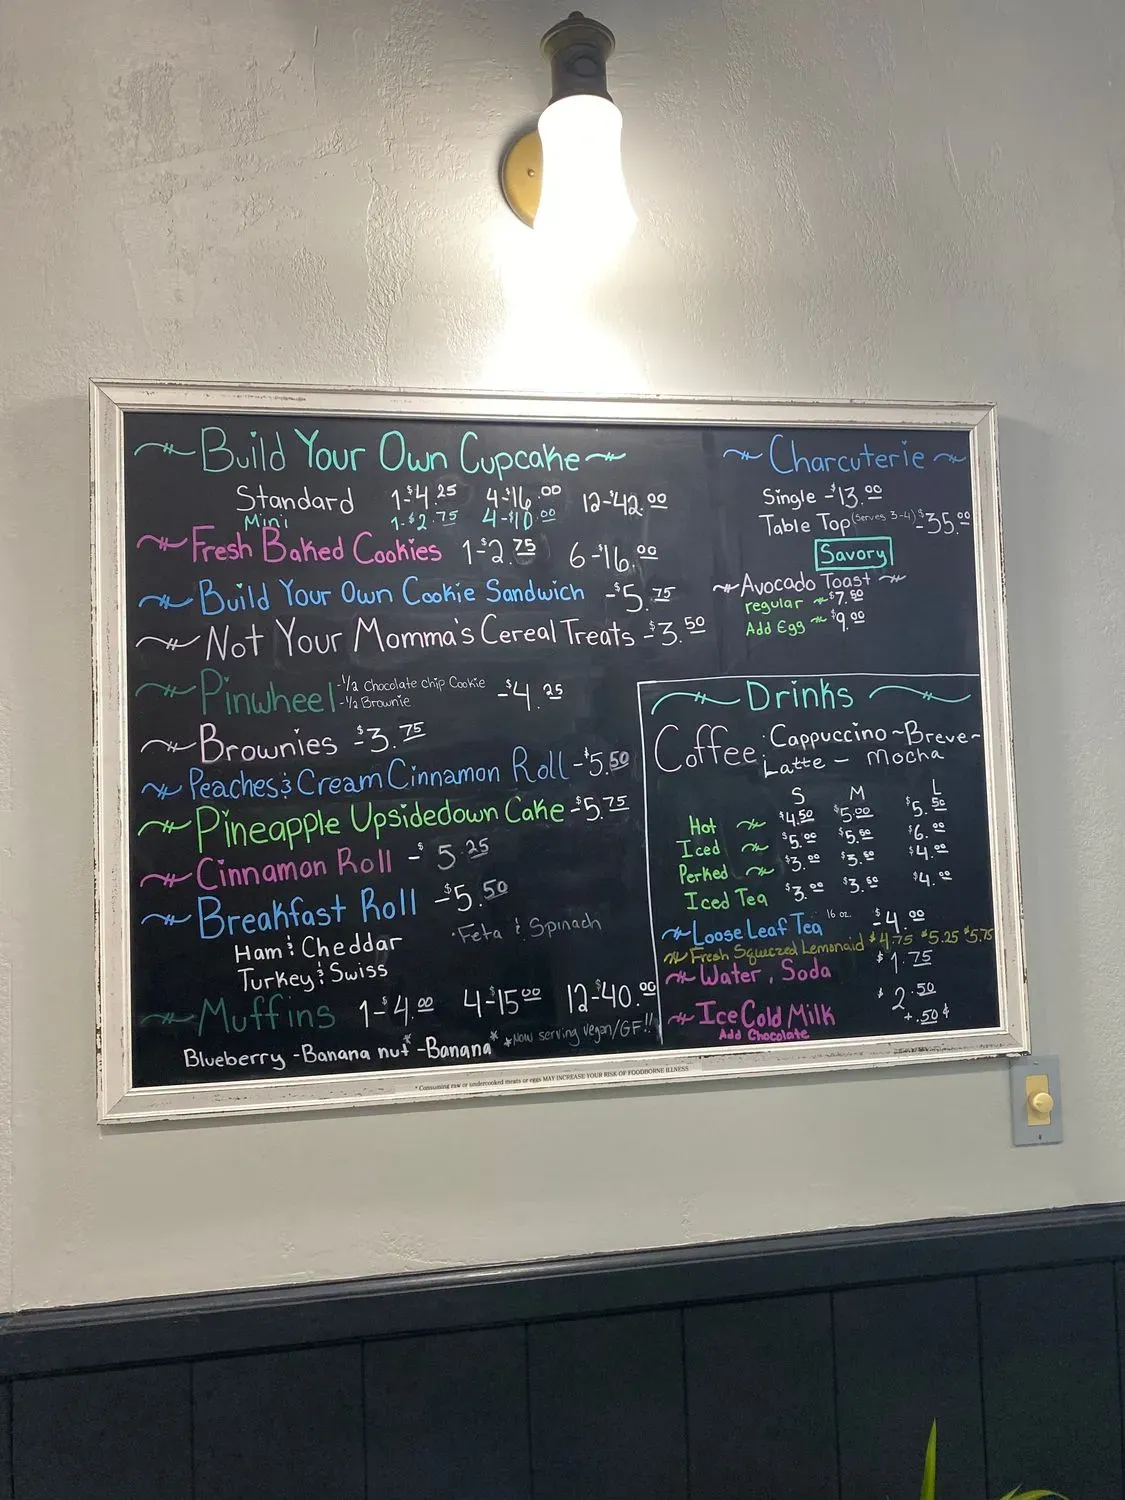 Build Your Own Cupcake
Standard 1-$4.25 4-$16.00 12-$42.00
Mini 1-$2.75 4-$10.00
Fresh Baked Cookies 1-$2.75 6-$16.00
Build Your Own Cookie Sandwich -$5.75
Not Your Momma's Cereal Treats -$3.50
Pinwheel -1/2 Chocolate chip Cookie -$4.25
-1/2 Brownie
Brownies -$3.75
Peaches & Cream Cinnamon Roll -$5.50
Pineapple Upsidedown Cake -$5.75
Cinnamon Roll -$5.25
Breakfast Roll -$5.50
Ham & Cheddar · Feta & Spinach
Turkey & Swiss
Muffins 1-$4.00 4-$15.00 12-$40.00
Blueberry -Banana nut* -Banana* *Now serving vegan/GF!!
Charcuterie
Single -$13.00
Table Top (Serves 3-4) -$35.00
Savory
Avocado Toast
regular ~ $7.50
Add Egg ~ $9.00
Drinks
Coffee: Cappuccino ~ Breve ~
Latte — Mocha
S M L
Hot ~ $4.50 $5.00 $5.50
Iced ~ $5.00 $5.50 $6.00
Perked ~ $3.00 $3.50 $4.00
Iced Tea $3.00 $3.50 $4.00
Loose Leaf Tea 16 oz. $4.00
Fresh Squeezed Lemonaid $4.75 $5.25 $5.75
Water, Soda $1.75
Ice Cold Milk $2.50
Add Chocolate +.50¢
* Consuming raw or undercooked meats or eggs MAY INCREASE YOUR RISK OF FOODBORNE ILLNESS